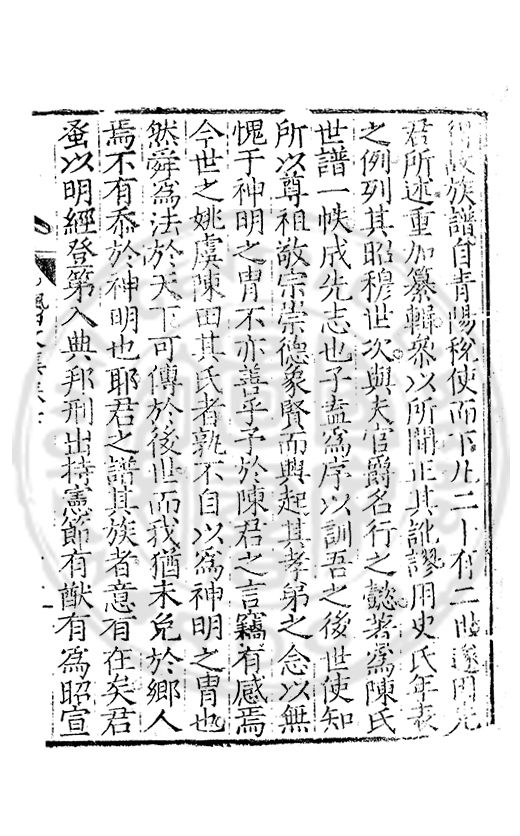 得故族譜自青陽稅使而下凡二十有二世遂閱先
君所述重加纂輯參以所聞正其訛謬用史氏年表
之例列其昭穆世次與夫官爵名行之懿著爲陳氏
世譜一帙成先志也子盍爲序以訓吾之後世使知
所以尊祖敬宗崇德象賢而興起其孝弟之念以無
愧于神明之冑不亦善乎予於陳君之言竊有感焉
今世之姚虞陳田其氏者孰不自以爲神明之冑也
然舜爲法於天下可傳於後世而我猶未免於鄉人
焉不有忝於神明也耶君之譜其族者意有在矣君
蚤以明經登第入典邦刑出持憲節有猷有爲昭宣